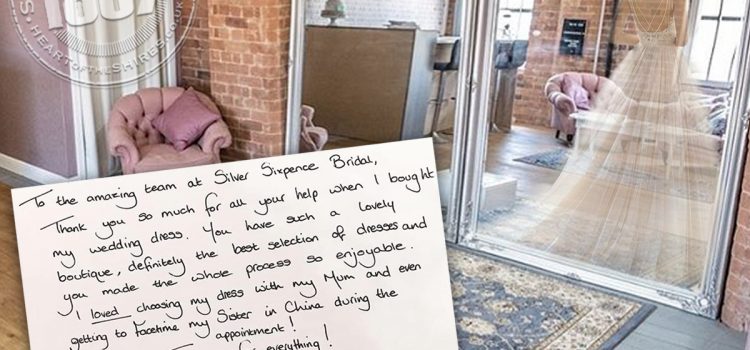 1887
S.HEARTOFTHESHIRES.CO.UK
To the amazing team at Silver Sixpence Bridal,
Thank you so much for all your help when I bought
my wedding dress. You have such a lovely
boutique, definitely the best selection of dresses and
you made the whole process so enjoyable.
I loved choosing my dress with my Mum and even
getting to Facetime my Sister in China during the
appointment!
everything!